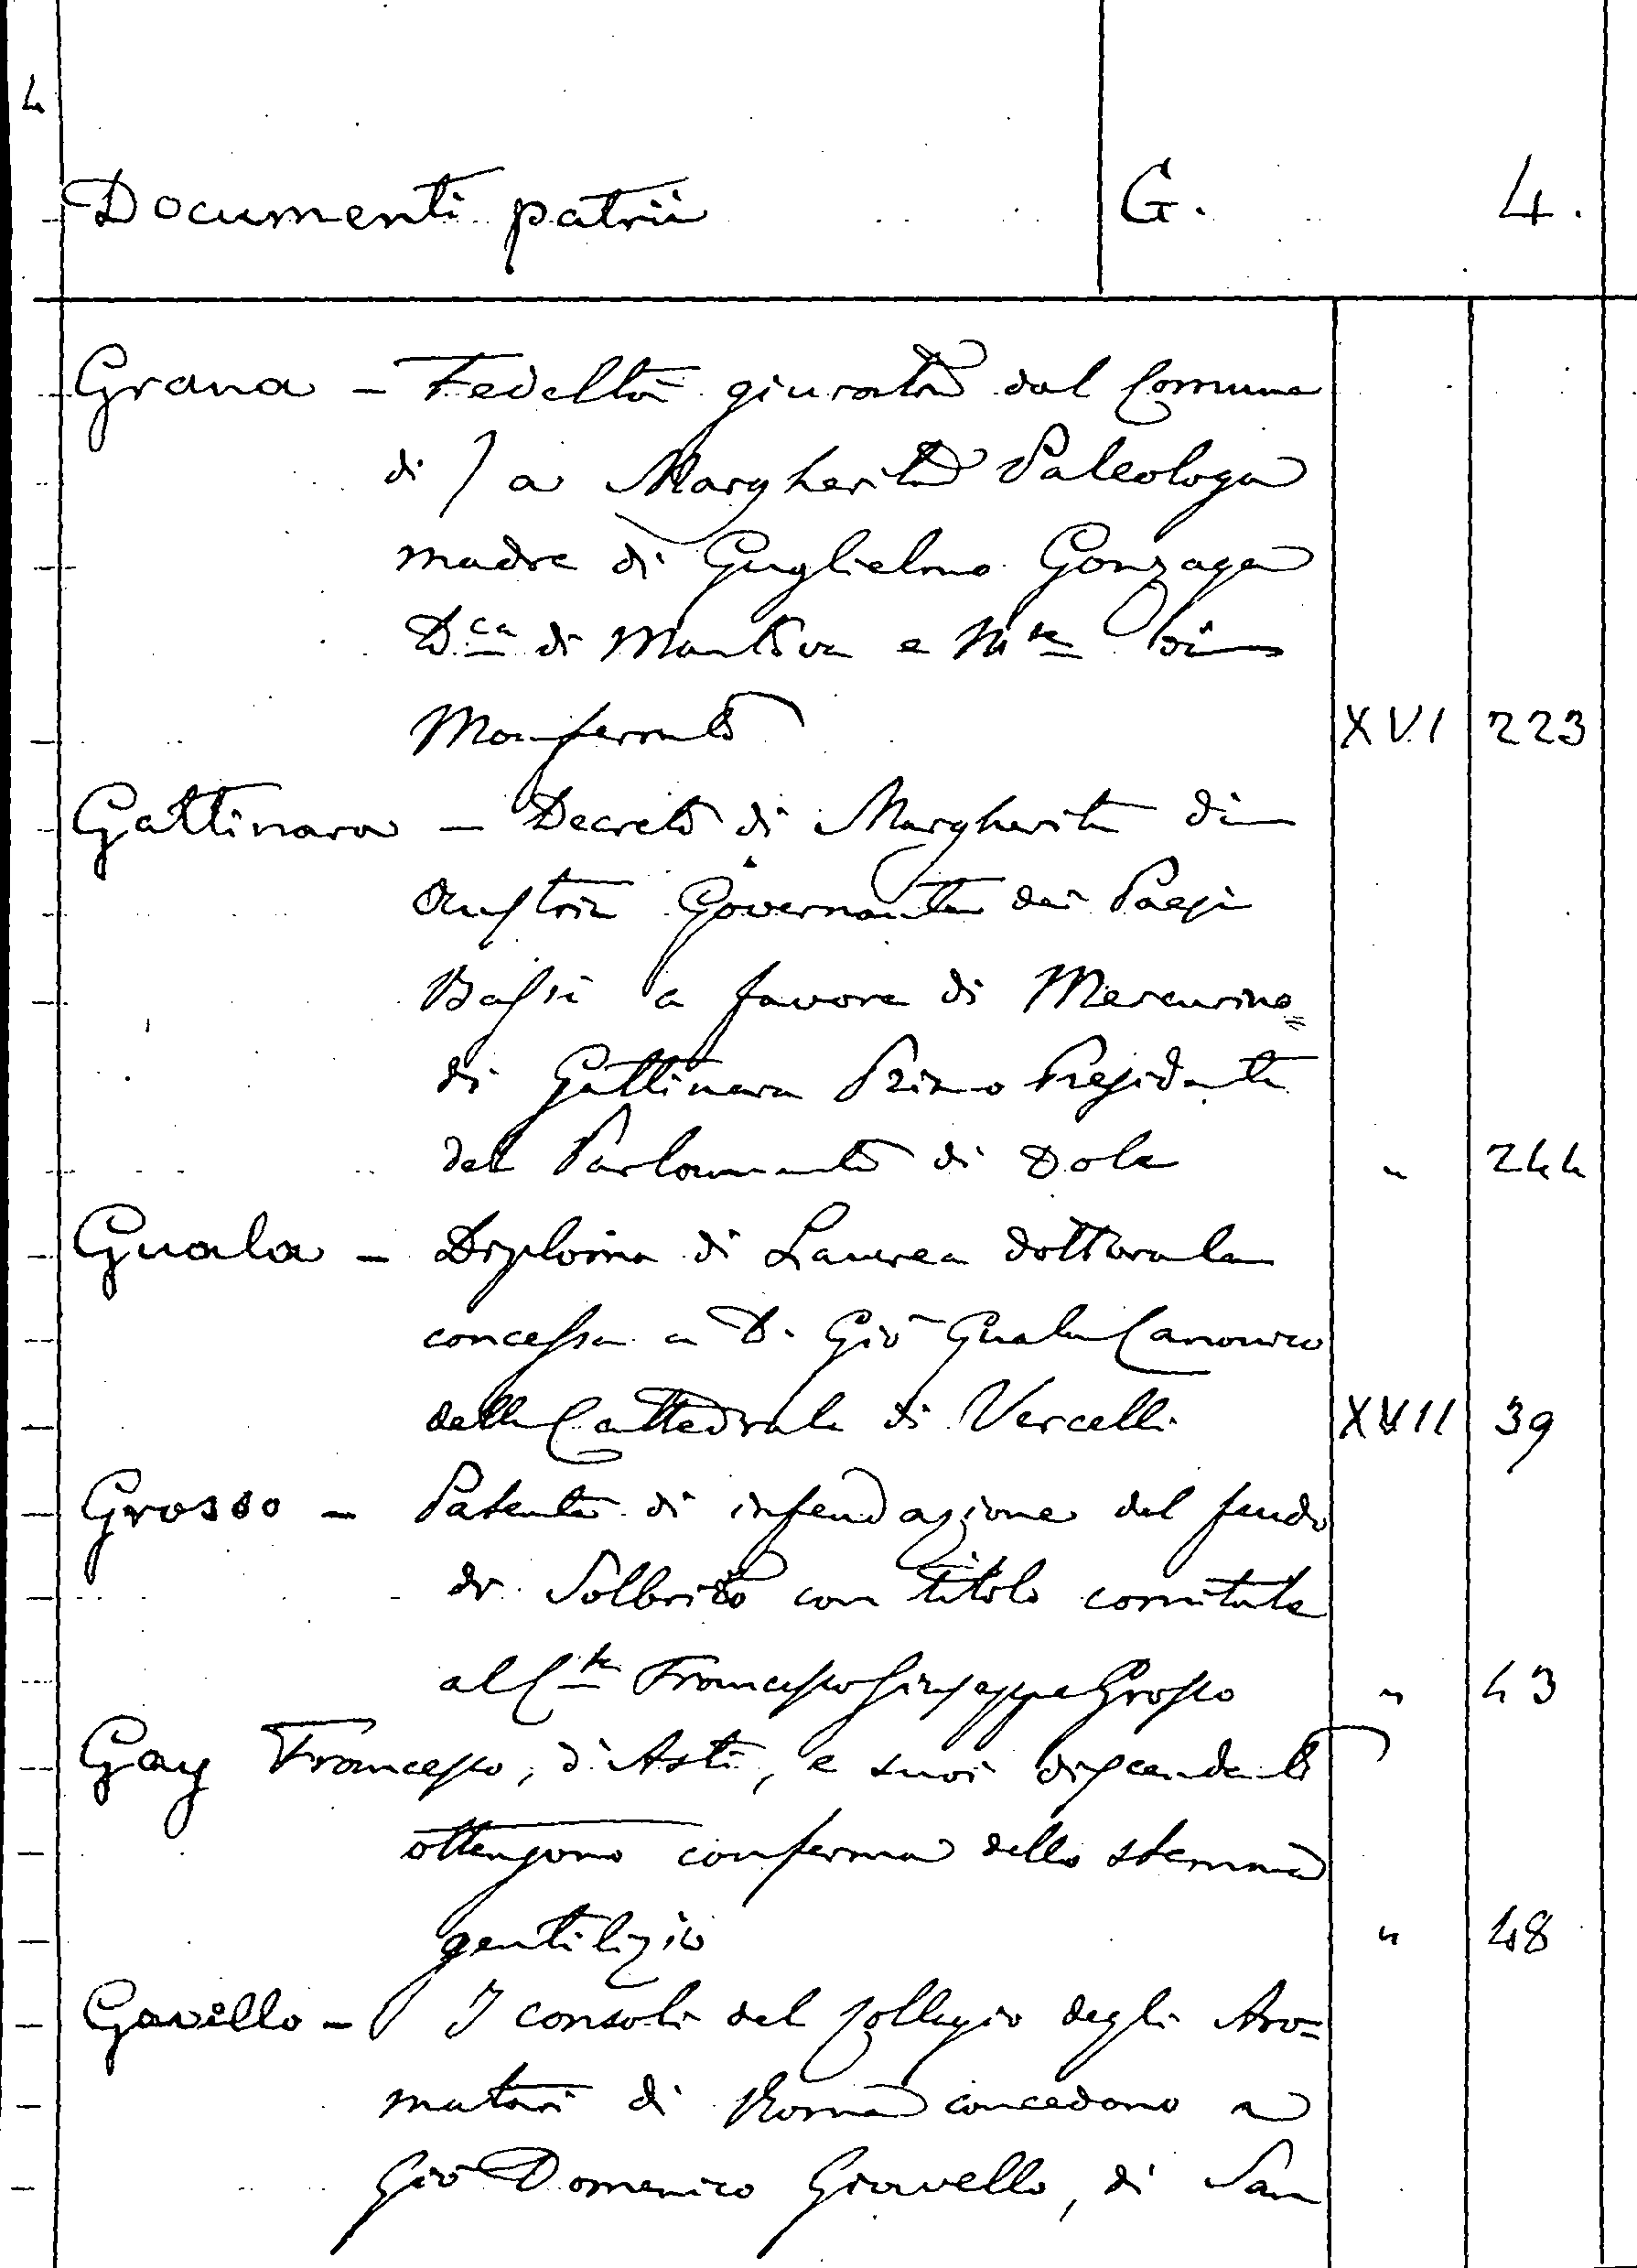 4
Documenti patrii G. 4.
Grana - Fedeltà giurata dal Comune
di / a Margherita Paleologa
madre di Guglielmo Gonzaga
D.ca di Mantova e M.se di
Monferrato XVI 223
Gattinara - Decreto di Margherita di
Austria Governante dei Paesi
Bassi a favore di Mercurino
di Gattinara Primo Presidente
del Parlamento di Dola " 244
Guala - Diploma di Laurea dottorale
concessa a D. Giò Guala Canonico
della Cattedrale di Vercelli XVII 39
Grosso - Patente di infeudazione del feudo
di Solbrito con titolo comitale
al C.te Francesco Giuseppe Grosso " 43
Gay Francesco, d'Asti, e suoi discendenti
ottengono conferma dello stemma
gentilizio " 48
Gavello - I consoli del Collegio degli Aro=
matari di Roma concedono a
Giò Domenico Giavello, di San